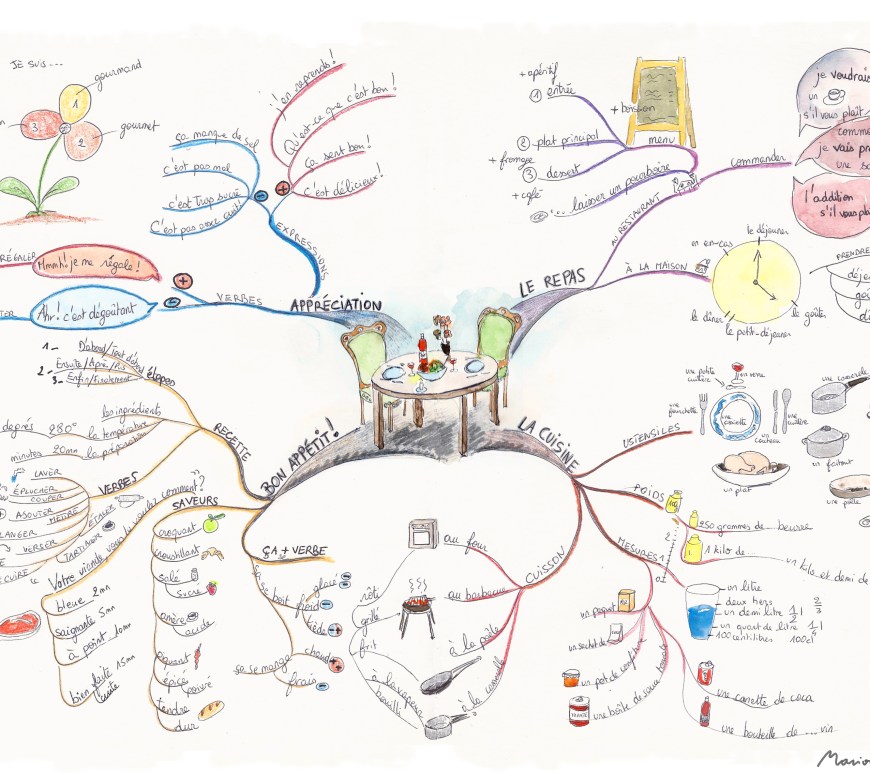 JE SUIS...
gourmand
1
3
2
gourmet
j'en reprends!
Qu'est-ce que c'est bon!
ça sent bon!
c'est délicieux!
+
-
ça manque de sel
c'est pas mal
c'est trop sucré
C'est pas assez cuit!
EXPRESSIONS
RÉGALER
Mmmh! je me régale!
Ah! c'est dégoûtant
+
-
VERBES
APPRÉCIATION
+ apéritif
1 entrée
+ boisson
2 plat principal
+ fromage
3 dessert
+ café
... laisser un pourboire
menu
AU RESTAURANT
commander
je voudrais
un
s'il vous plaît
comme
je vais pr
une
l'addition
s'il vous plaî
LE REPAS
À LA MAISON
en en-cas
le déjeuner
le goûter
le petit-déjeuner
le dîner
PRENDRE
déje
goû
dî
1-
D'abord/Tout d'abord
2-
Ensuite/Après/Puis
3-
Enfin/Finalement
étapes
les ingrédients
degrés 280°
la température
minutes 20mn
la préparation
RECETTE
VERBES
LAVER
ÉPLUCHER
COUPER
AJOUTER
METTRE
LANGER
VERSER
CUIRE
ÉTALER
TARTINER
BON APPÉTIT!
Votre viande, vous la voulez comment?
bleue 2mn
saignante 5mn
à point 10mn
bien faite 15mn
/cuite
SAVEURS
croquant
croustillant
salé
sucré
amère
acide
piquant
épicé
poivré
tendre
dur
ÇA + VERBE
ça se boit
glacé
froid
tiède
chaud
ça se mange
frais
LA CUISINE
USTENSILES
une petite cuillère
un verre
une fourchette
une assiette
un couteau
une cuillère
un plat
une casserole
un faitout
une poêle
POIDS
1KG
250 grammes de... beurre
1 kilo de...
un kilo et demi de
MESURES
un litre
deux tiers 2/3
un demi litre 1/2 l
un quart de litre
100 centilitres 100cl
un paquet
un sachet de
un pot de confiture
une boîte de sauce tomate
TOMATE
une canette de coca
une bouteille de ... vin
CUISSON
au four
au barbecue
à la poêle
à la casserole
rôti
grillé
frit
à la vapeur
bouilli